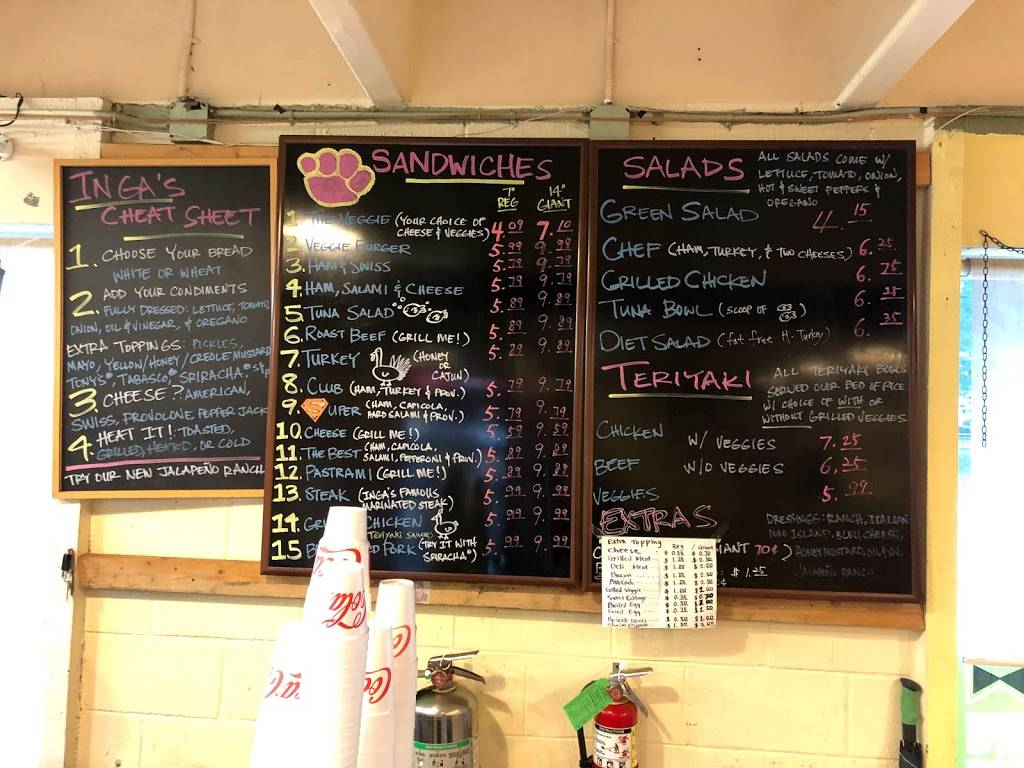 INGA'S
CHEAT SHEET
1. CHOOSE YOUR BREAD
WHITE OR WHEAT
2. ADD YOUR CONDIMENTS
FULLY DRESSED: LETTUCE, TOMATO,
ONION, OIL & VINEGAR, & OREGANO
EXTRA TOPPINGS: PICKLES,
MAYO, YELLOW/HONEY/CREOLE MUSTARD
TONY'S®, TABASCO® SRIRACHA® S&P
3. CHEESE? AMERICAN,
SWISS, PROVOLONE, PEPPER JACK
4. HEAT IT!: TOASTED,
GRILLED, HEATED, OR COLD
TRY OUR NEW JALAPEÑO RANCH
SANDWICHES
7" REG 14" GIANT
1. THE VEGGIE (YOUR CHOICE OF CHEESE & VEGGIES) 4.09 7.10
2. VEGGIE BURGER 5.99 9.99
3. HAM & SWISS 5.79 9.79
4. HAM, SALAMI & CHEESE 5.79 9.79
5. TUNA SALAD 5.89 9.89
6. ROAST BEEF (GRILL ME!) 5.89 9.89
7. TURKEY (HONEY OR CAJUN) 5.89 9.89
8. CLUB (HAM, TURKEY & PROV.) 5.79 9.79
9. SUPER (HAM, CAPICOLA, HARD SALAMI & PROV.) 5.79 9.79
10. CHEESE (GRILL ME!) 5.59 9.59
11. THE BEST (HAM, CAPICOLA, SALAMI, PEPPERONI & PROV.) 5.89 9.89
12. PASTRAMI (GRILL ME!) 5.89 9.89
13. STEAK (INGA'S FAMOUS MARINATED STEAK) 5.99 9.99
14. CHICKEN (TERIYAKI SAUCE) 5.99 9.99
15 PORK (TRY IT WITH SRIRACHA®) 5.99 9.99
SALADS
ALL SALADS COME W/
LETTUCE, TOMATO, ONION,
HOT & SWEET PEPPERS &
OREGANO
GREEN SALAD 4.15
CHEF (HAM, TURKEY, & TWO CHEESES) 6.25
GRILLED CHICKEN 6.75
TUNA BOWL (SCOOP OF 6.25
DIET SALAD (fat free H. Turkey) 6.35
TERIYAKI
ALL TERIYAKI BOWLS
SERVED OVER BED OF RICE
W/ CHOICE OF WITH OR
WITHOUT GRILLED VEGGIES.
CHICKEN W/ VEGGIES 7.25
BEEF W/O VEGGIES 6.25
VEGGIES 5.99
EXTRAS
DRESSINGS: RANCH, ITALIAN
1000 ISLAND, BLEU CHEESE,
HONEY MUSTARD, OIL & VIN.
JALAPEÑO RANCH
GIANT 70¢)
$1.25
Extra Topping Reg / Giant
Cheese $0.35 $0.70
Grilled Meat
Deli Meat
Bacon
Avocado
Grilled Veggie
Boiled Egg
Fried Egg
Coca-Cola